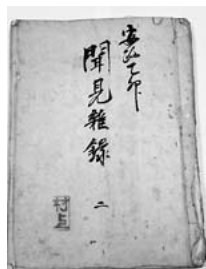 安政乙卯
聞見雑録 二
村上